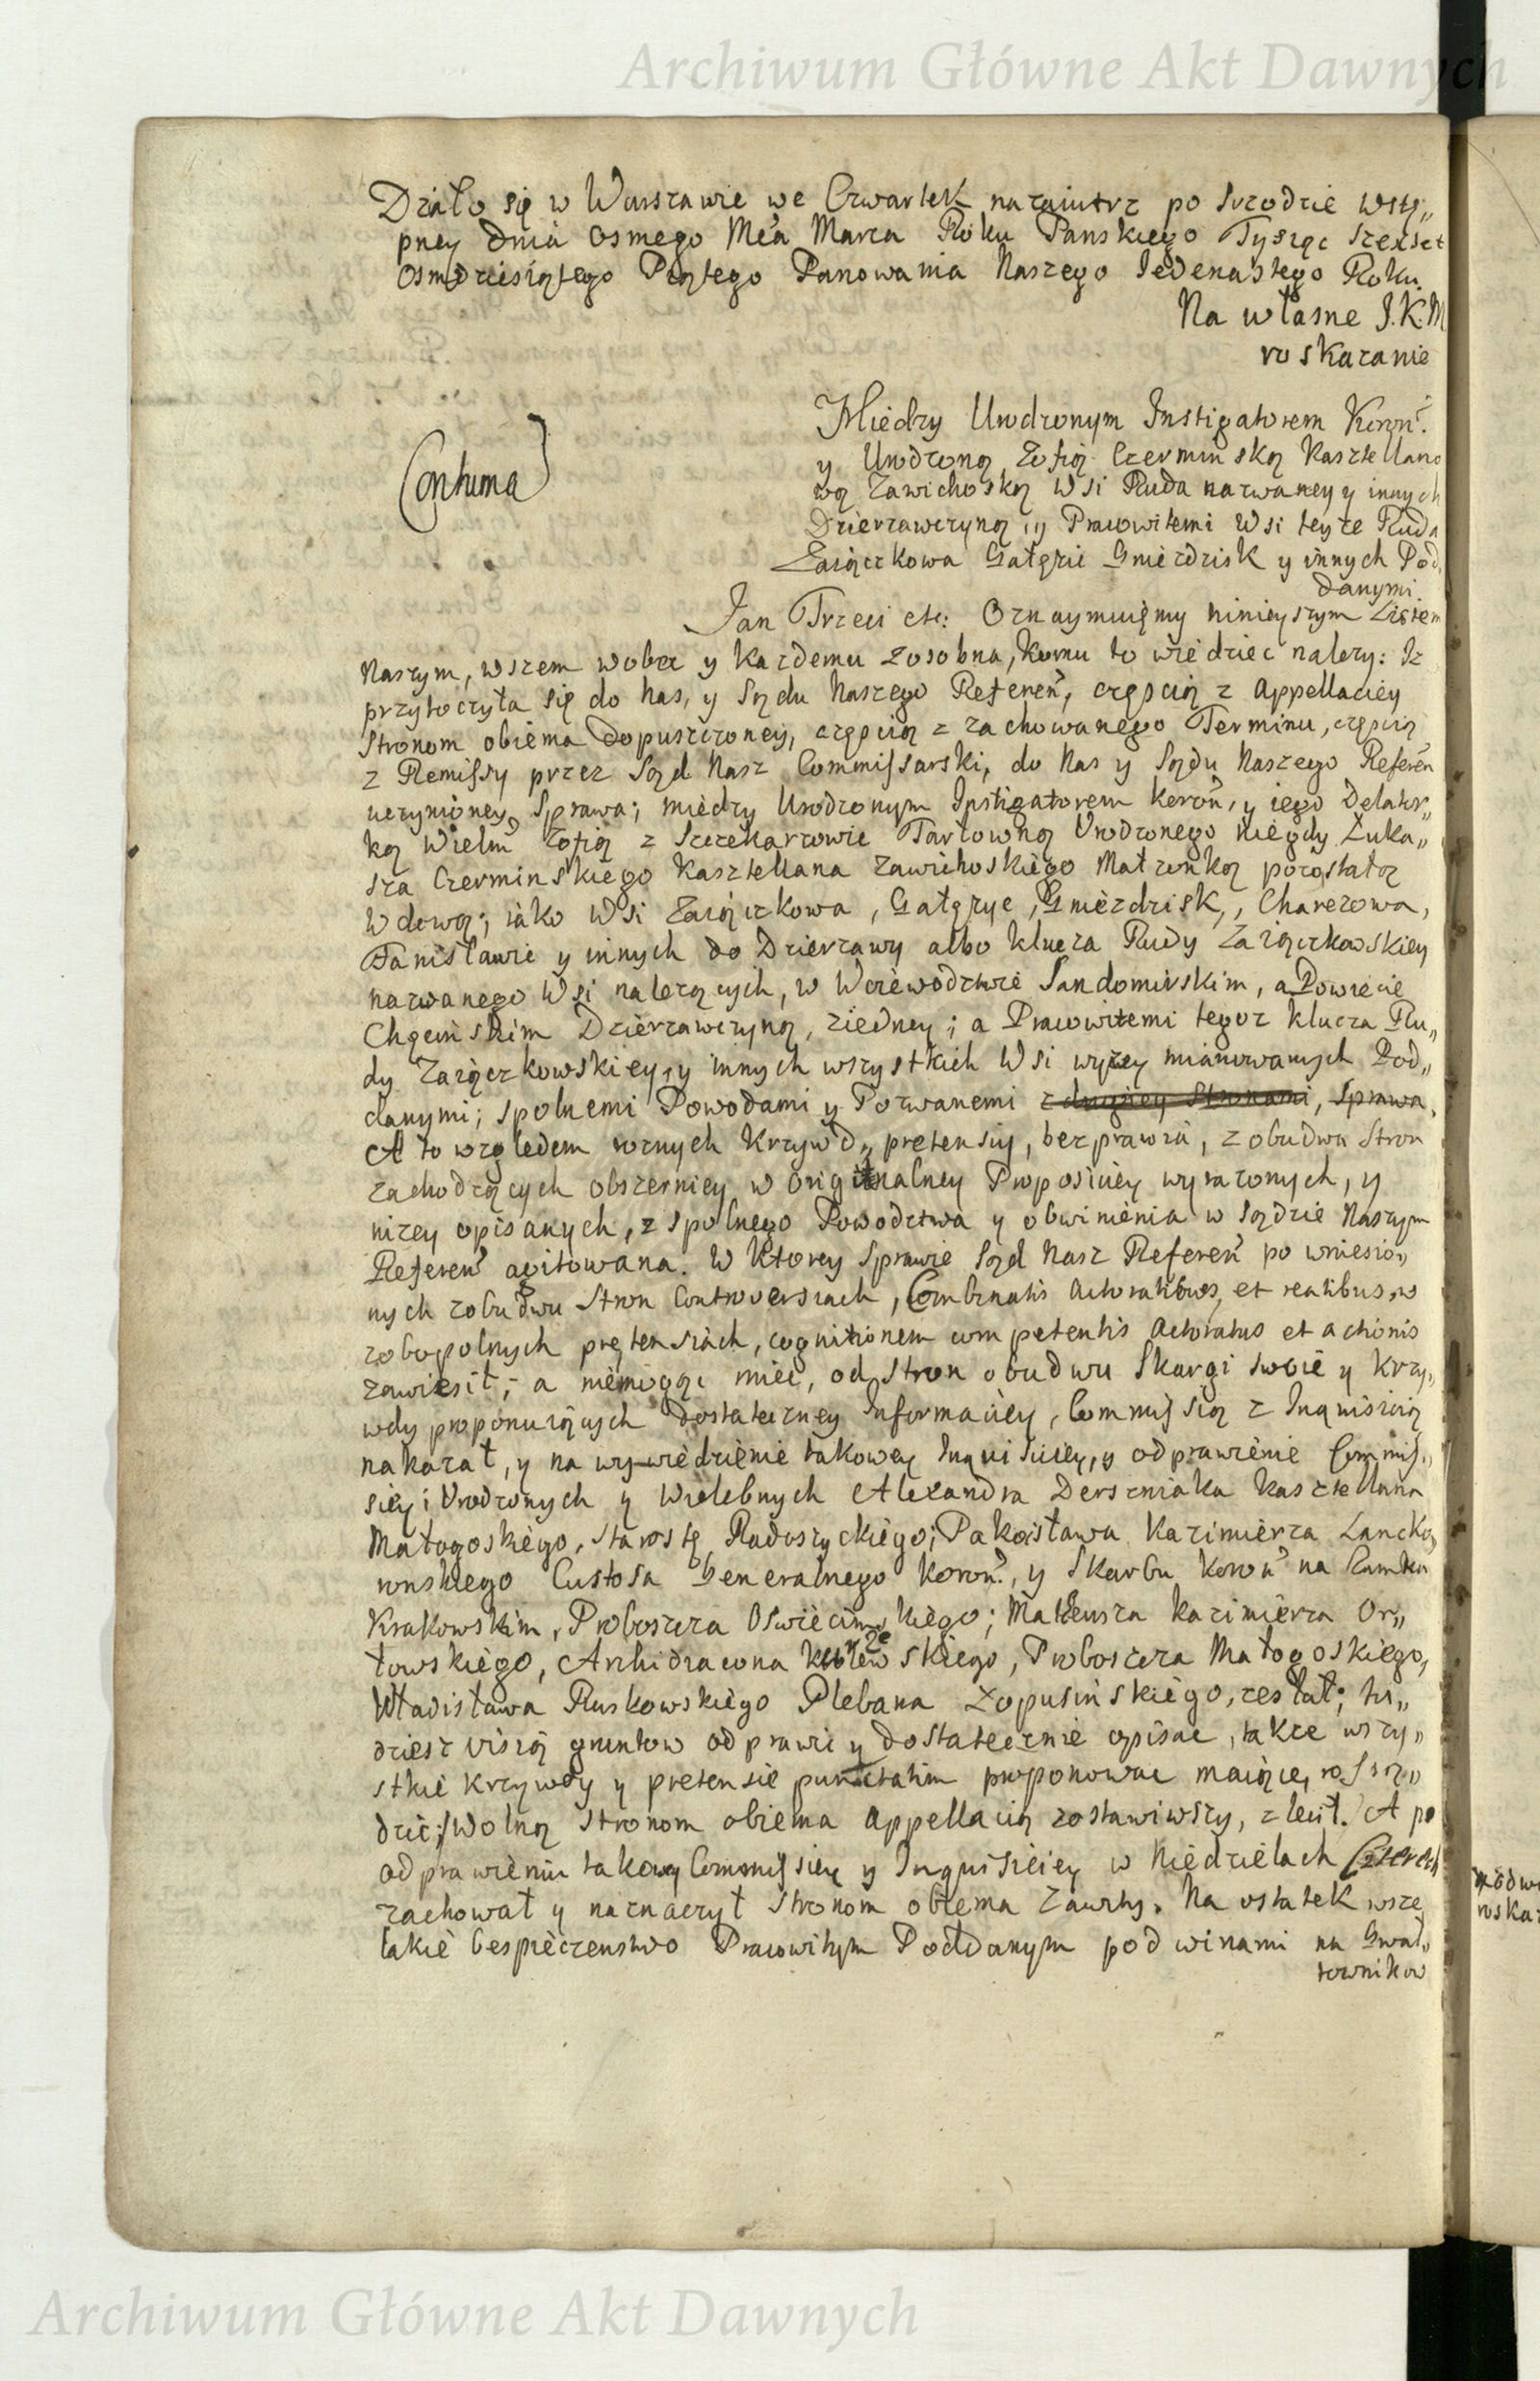 Archiwum Główne Akt Dawnych
Działo się w Warszawie we Czwartek nazaiutrz po Srzodzie Wstę„
pney dnia Osmego Mca Marca Roku Panskiego Tysiąc Szesset
Osmdziesiątego Piątego Panowania Naszego Iedenastego Roku.
Na własne J.K.M
roskazanie
Między Urodzonym Instigatorem Koron.
y Urodzoną Zofią Czerminską Kasztellano
wą Zawichoską Wsi Ruda nazwaney y innych
Dzierzawczyną, y Pracowitemi Wsi teyze Ruda
Zaiączkowa Gałęzie Gniezdzisk y innych Pod„
danymi.
Contuma
Jan Trzeci etc: Oznaymuięmy ninieyszym Listem
Naszym, wszem wobec y kazdemu zosobna, komu to wiedziec nalezy: Iz
przytoczyła się do Nas, y Sądu Naszego Referen, częscią z Appellaciey
Stronom obiema dopuszczoney, częscią z zachowanego Terminu, częscią
z Remissy przez Sąd Nasz Commissarski, do Nas y Sądu Naszego Referen
uczynioney, Sprawa; między Urodzonym Instigatorem Koron, y iego Delator„
ką Wielm Zofią z Sczekarzowic Tarłowną Urodzonego niegdy Łuka„
sza Czerminskiego Kasztellana Zawichoskiego Małzonką pozostałą
Wdową; iako Wsi Zaiączkowa, Gałęzye, Gniezdzisk, Charezowa,
Fanisławic y innych do Dzierzawy albo klucza Rudy Zaiączkowskiey
nazwanego Wsi nalezących, w Woiewodztwie Sandomirskim, a Powiecie
Chęcinskim Dzierzawczyną, ziedney; a Pracowitemi tegoz klucza Ru„
dy Zaiączkowskiey, y innych wszystkich Wsi wyzey mianowanych Pod„
danymi; spolnemi Powodami y Pozwanemi z drugiey Stronami, Sprawa.
A to względem roznych Krzywd, pretensiy, bezprawia, z obudwu Stron
zachodzących obszerniey w originalney Proposiciey wyrazonych, y
nizey opisanych, z spolnego Powodztwa y obwinienia w Sądzie Naszym
Referen agitowana. W ktorey Sprawie Sąd Nasz Referen po wniesio„
nych zobudwu Stron Controversiach, Combinatis Actoratibus, et reatibus, w
zobopolnych pretensiach, cognitionem competentis Actoratus et actionis
zawiesił; a niemogąc miec, od Stron obudwu Skargi swoie y Krzy„
wdy proponuiących dostateczney Informaciey, Commissią z Inquisicią
nakazał, y na wywiedzienie takowey Inquisiciey, y odprawienie Commis„
siey; Urodzonych y Wielebnych Alexandra Derszniaka Kasztellana
Małogoskiego, Starostę Radoszyckiego; Pakosława Kazimierza Lancko„
ronskiego Custosa Generalnego Koron., y Skarbu Koron na Zamku
Krakowskim, Proboszcza Oswiecimskiego; Matheusza Kazimierza Or„
łowskiego, Archidiacona skiego, Proboszcza Małogoskiego,
Władisława Ruskowskiego Plebana Łopusinskiego, zesłał; tu„
dziesz visią gruntow odprawic y dostatecznie opisac, takze wszy„
stkie krzywdy y pretensie punctatim proponowac maiące, rossą„
dzic; Wolną Stronom obiema Appellacią zostawiwszy, zlecił. A po
odprawieniu takowey Commissiey y Inquisiciey w Niedzielach Czterech
zachował y naznaczył Stronom obiema Zawity. Na ostatek wsze
lakie bespieczenstwo Pracowitym Poddanym pod winami na Gwał„
townikow
Archiwum Główne Akt Dawnych